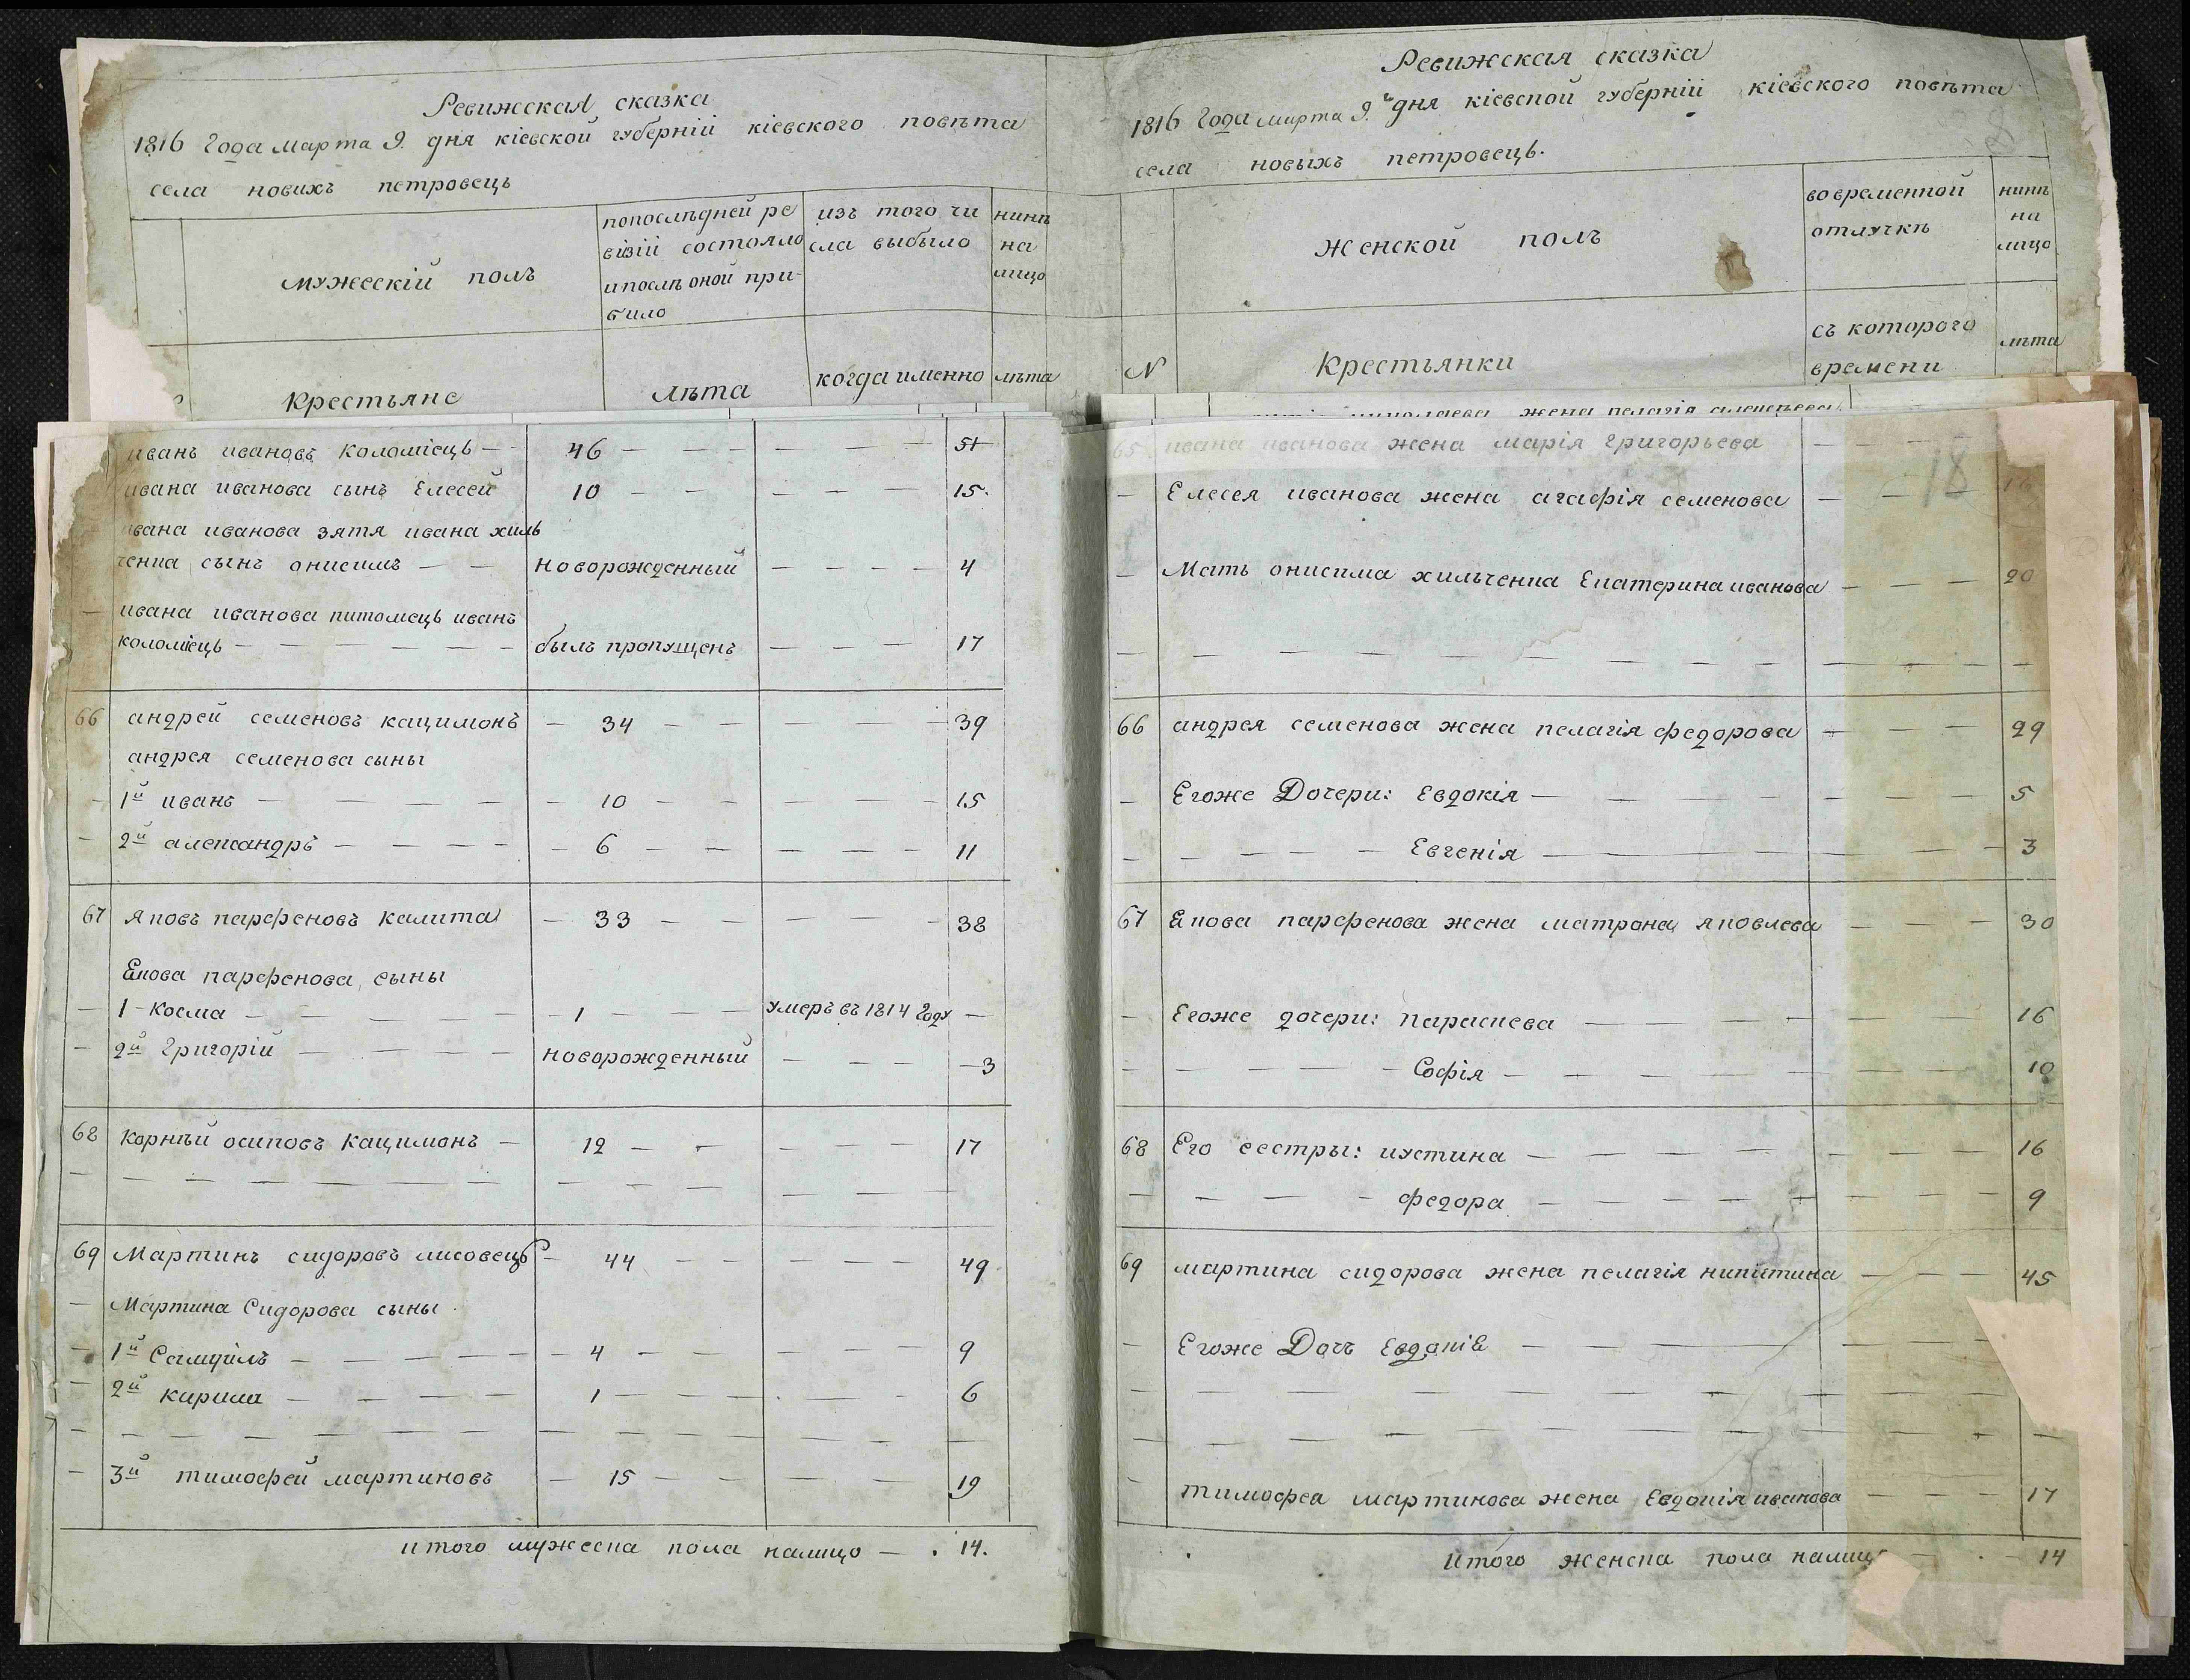 Ревижская сказка
1816 Года марта 9. дня кіевской губерніи кіевского повѣта
села новихъ петровець
мужескій полъ
попослѣдней ре
візіи состояло
ипослѣ оной при-
било
изъ того чи
сла выбыло
нинѣ
на
лицо
Крестьяне
лѣта
когда именно
лѣта
иванъ ивановъ Коломіець — 46 — 51
ивана иванова сынъ Елесей 10 — 15.
ивана иванова зятя ивана хиль
ченка сынъ онисимъ — новорожденный — 4
ивана иванова питомець иванъ
коломіець — былъ пропущенъ — 17
66 андрей семеновъ кацимонъ — 34 — 39
андрея семенова сыны
1й иванъ — 10 — 15
2й александръ — 6 — 11
67 яковъ парфеновъ калита — 33 — 38
Якова парфенова сыны
1 - Косма — 1 — умеръ въ 1814 году —
2й Григорій — новорожденный — 3
68 Корнѣй осиповъ Кацимонъ — 12 — 17
69 Мартинъ сидоровъ лисовець — 44 — 49
Мартина Сидорова сыны
1й Самуилъ — 4 — 9
2й кирила — 1 — 6
3й тимофей мартиновъ — 15 — 19
итого мужеска пола налицо — 14.
Ревижская сказка
1816 Года марта 9.го дня кіевской губерніи кіевского повѣта
села новыхъ петровець.
N
Женской полъ
вовременной
отлучкѣ
нинѣ
на
лицо
Крестьянки
съ которого
времени
лѣта
жена пелагія алексѣева
65 ивана иванова жена марія григорьева —
Елесея иванова жена агафія семенова — 16
18
Мать онисима хильченка Екатерина иванова — 20
66 андрея семенова жена пелагія федорова — 29
Егоже Дочери: Евдокія — 5
Евгенія — 3
67 Якова парфенова жена матрона яковлева — 30
Егоже дочери: параскева — 16
Софія — 10
68 Его сестры: иустина — 16
федора — 9
69 мартина сидорова жена пелагія никитина — 45
Егоже Дочъ Евдокія —
тимофеа мартинова жена Евдокія иванова — 17
Итого женска пола налицо — 14